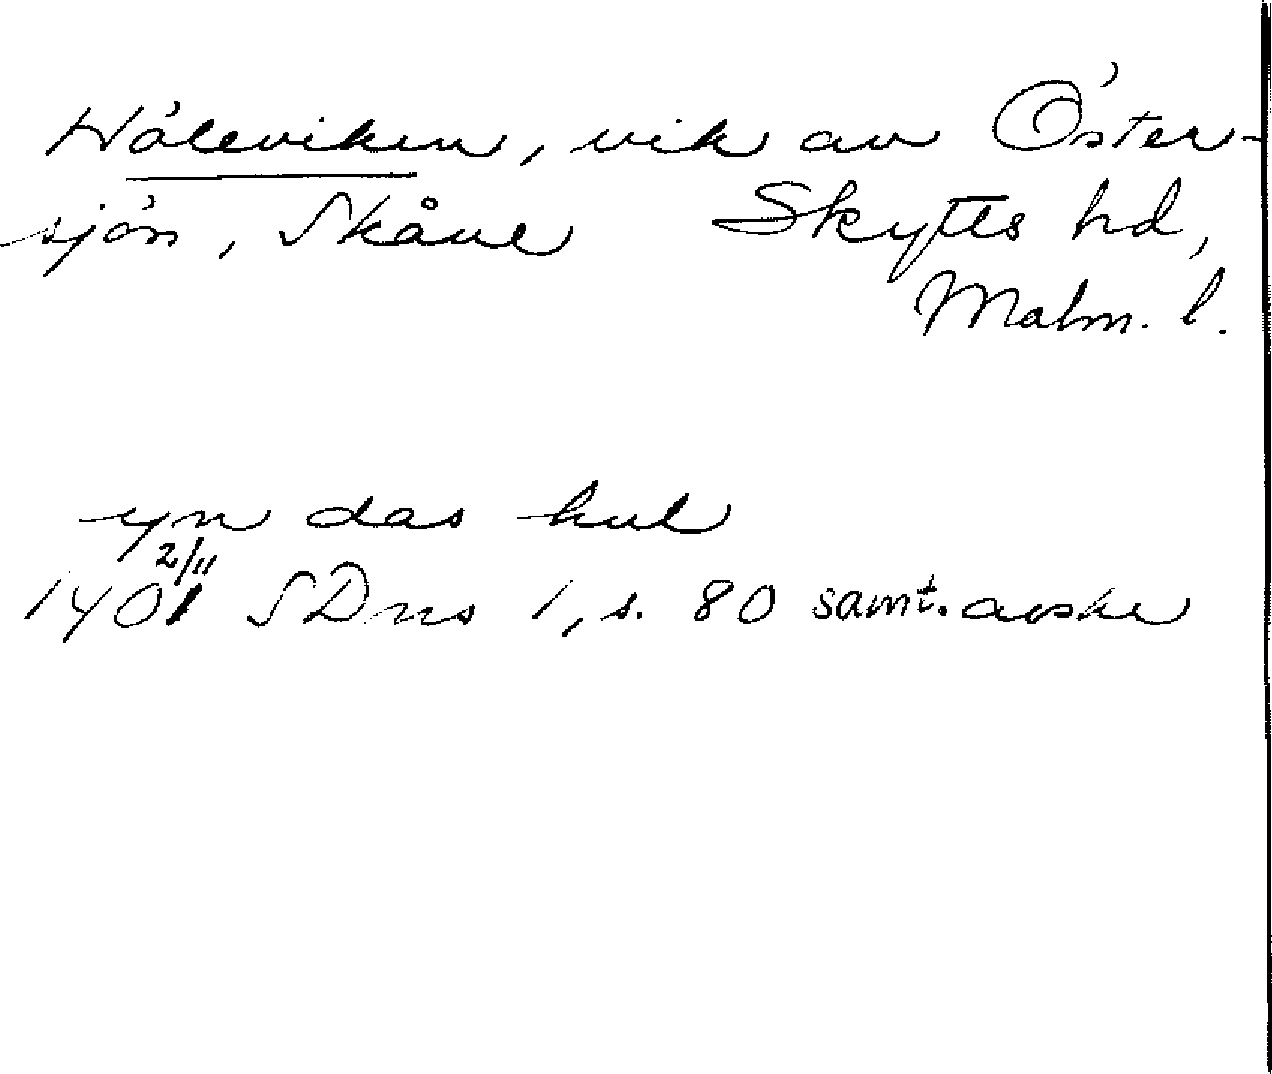 Höleviken, vik av Öster-
sjön, Skåne Skytts hd,
Malm. l.
yn das hul
2/11
1401 SDns 1, s. 80 samt. avskr